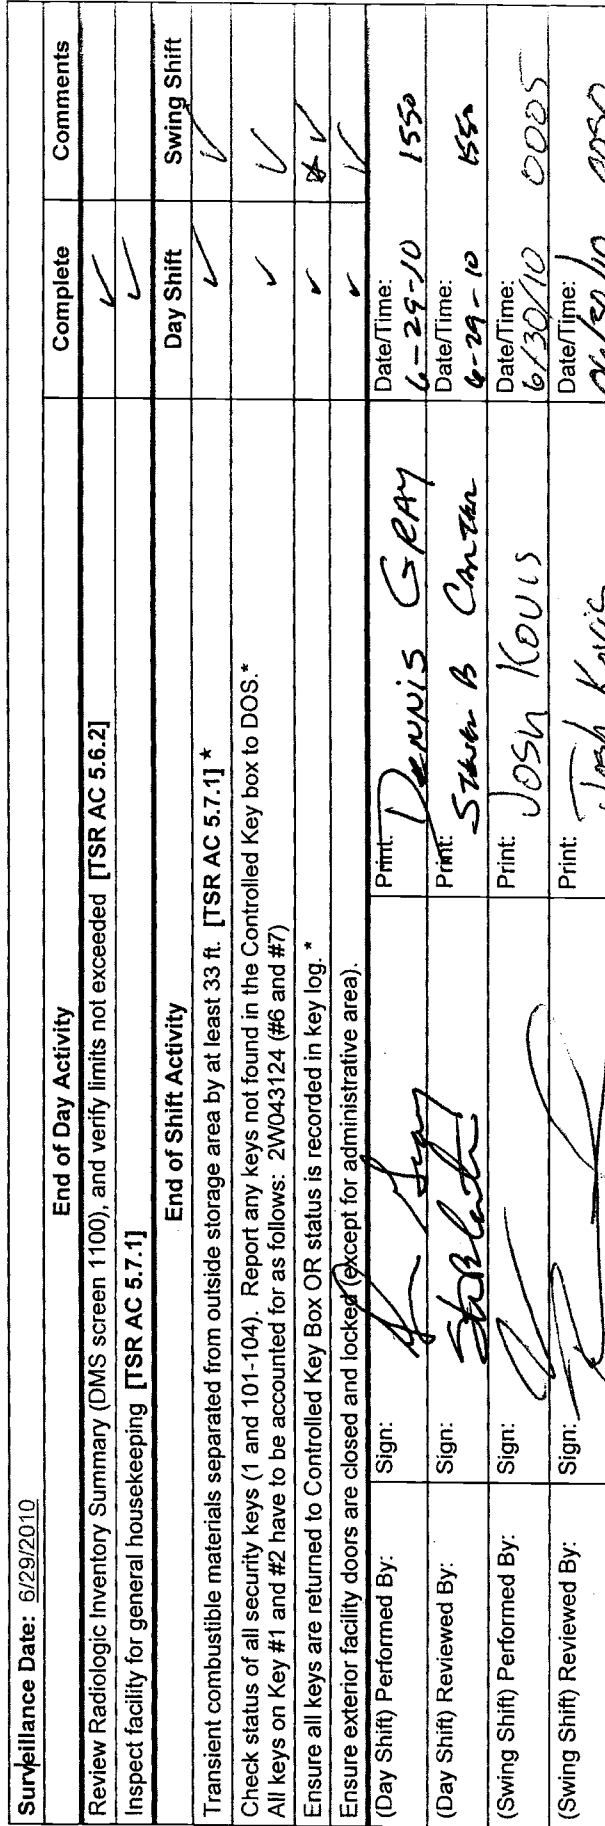 Surveillance Date: 6/29/2010
End of Day Activity Complete Comments
Review Radiologic Inventory Summary (DMS screen 1100), and verify limits not exceeded [TSR AC 5.6.2] ✓
Inspect facility for general housekeeping [TSR AC 5.7.1] ✓
End of Shift Activity Day Shift Swing Shift
Transient combustible materials separated from outside storage area by at least 33 ft. [TSR AC 5.7.1] * ✓ ✓
Check status of all security keys (1 and 101-104). Report any keys not found in the Controlled Key box to DOS.* ✓ ✓
All keys on Key #1 and #2 have to be accounted for as follows: 2W043124 (#6 and #7)
Ensure all keys are returned to Controlled Key Box OR status is recorded in key log. * ✓ * ✓
Ensure exterior facility doors are closed and locked (except for administrative area). ✓ ✓
(Day Shift) Performed By: Sign: Print: DENNIS GRAY Date/Time: 6-29-10 1550
(Day Shift) Reviewed By: Sign: Print: Steven B Date/Time: 6-29-10 1550
(Swing Shift) Performed By: Sign: Print: Josh Kovis Date/Time: 6/30/10 0005
(Swing Shift) Reviewed By: Sign: Print: Josh Kovis Date/Time: 06/30/10